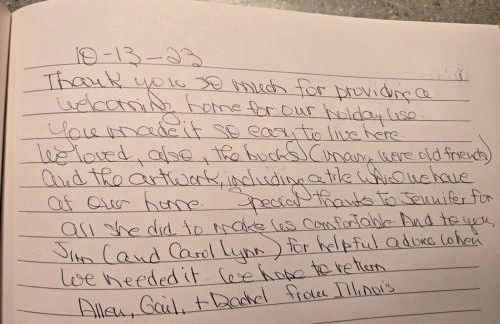 10-13-23
Thank you so much for providing a
welcoming home for our holiday use.
You made it so easy to live here.
We loved, also, the books (many were old friends)
and the artwork, including a tile which we have
at our home. Special thanks to Jennifer for
all she did to make us comfortable. And to you,
Jim (and Carol Lynn) for helpful advice when
we needed it. We hope to return
Allen, Gail, + Rachel from Illinois